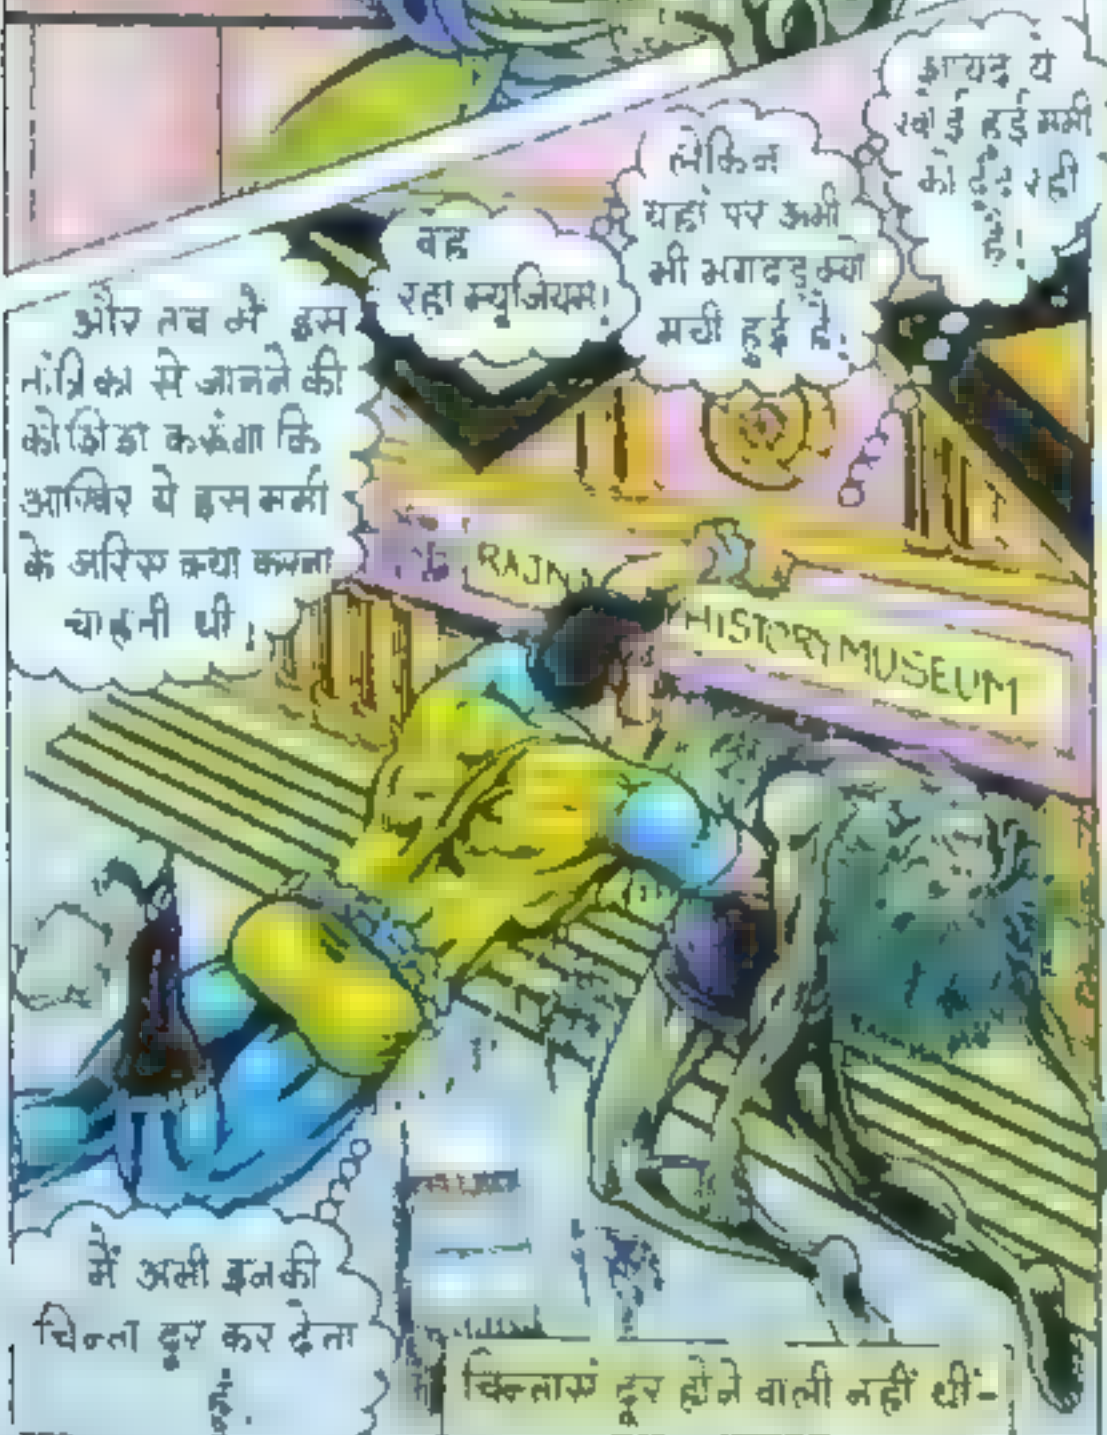 और तब मैं इस
तंत्रिका से जानने की
कोशिश करूंगा कि
आखिर ये इस ममी
के जरिए क्या करना
चाहती थी.
वह
रहा म्यूजियम!
लेकिन
यहां पर अभी
भी भगदड़ क्यों
मची हुई है.
शायद ये
खोई हुई ममी
को ढूंढ रही
है!
HISTORY MUSEUM
मैं अभी इनकी
चिन्ता दूर कर देता
हूं.
चिन्ताएं दूर होने वाली नहीं थीं-